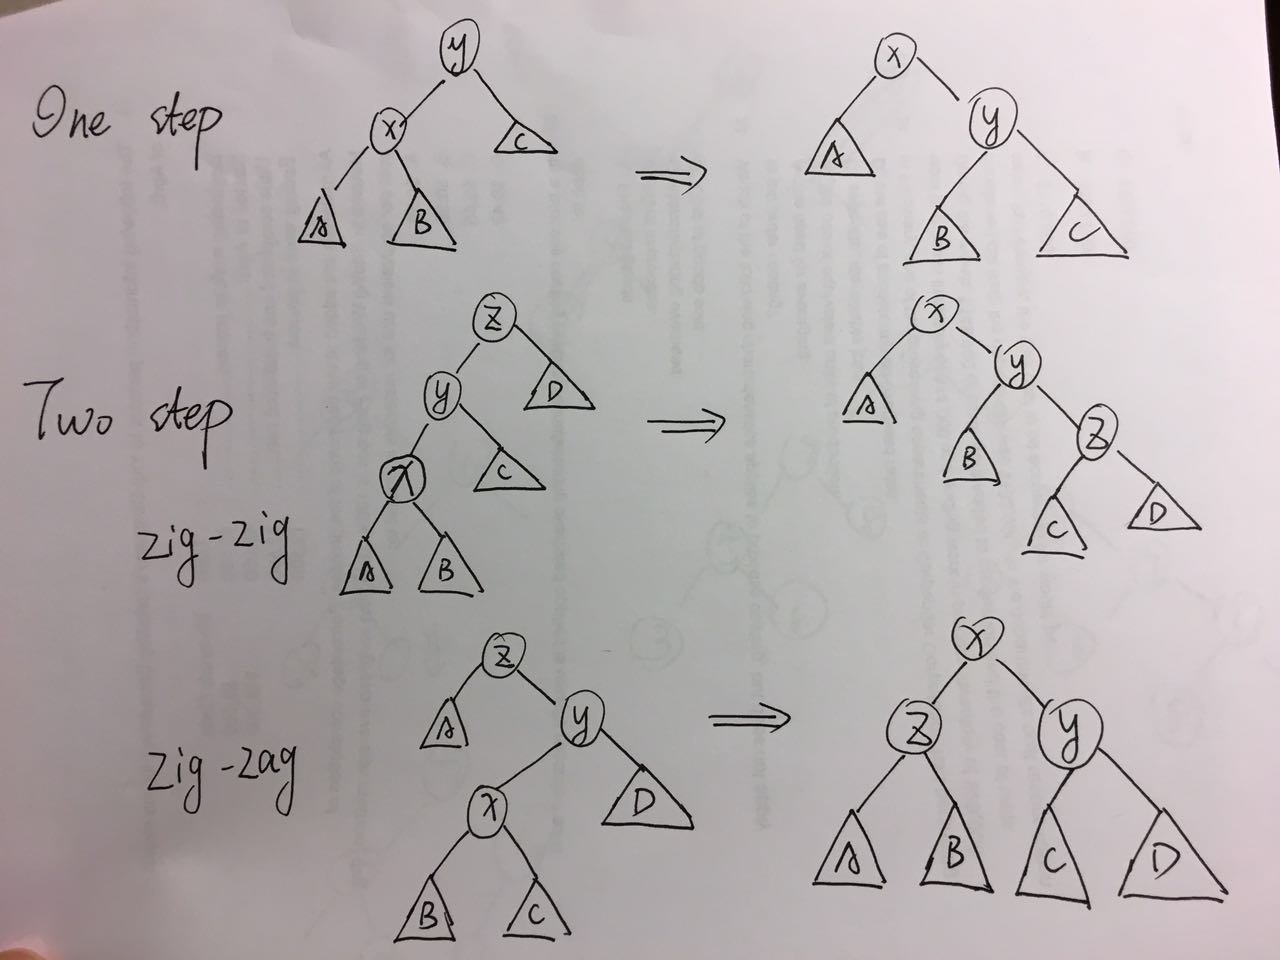 One step
y
x
C
A
B
⇒
x
A
y
B
C
Two step
zig-zig
z
y
D
x
C
A
B
⇒
x
A
y
B
z
C
D
zig-zag
z
A
y
x
D
B
C
⇒
x
z
y
A
B
C
D